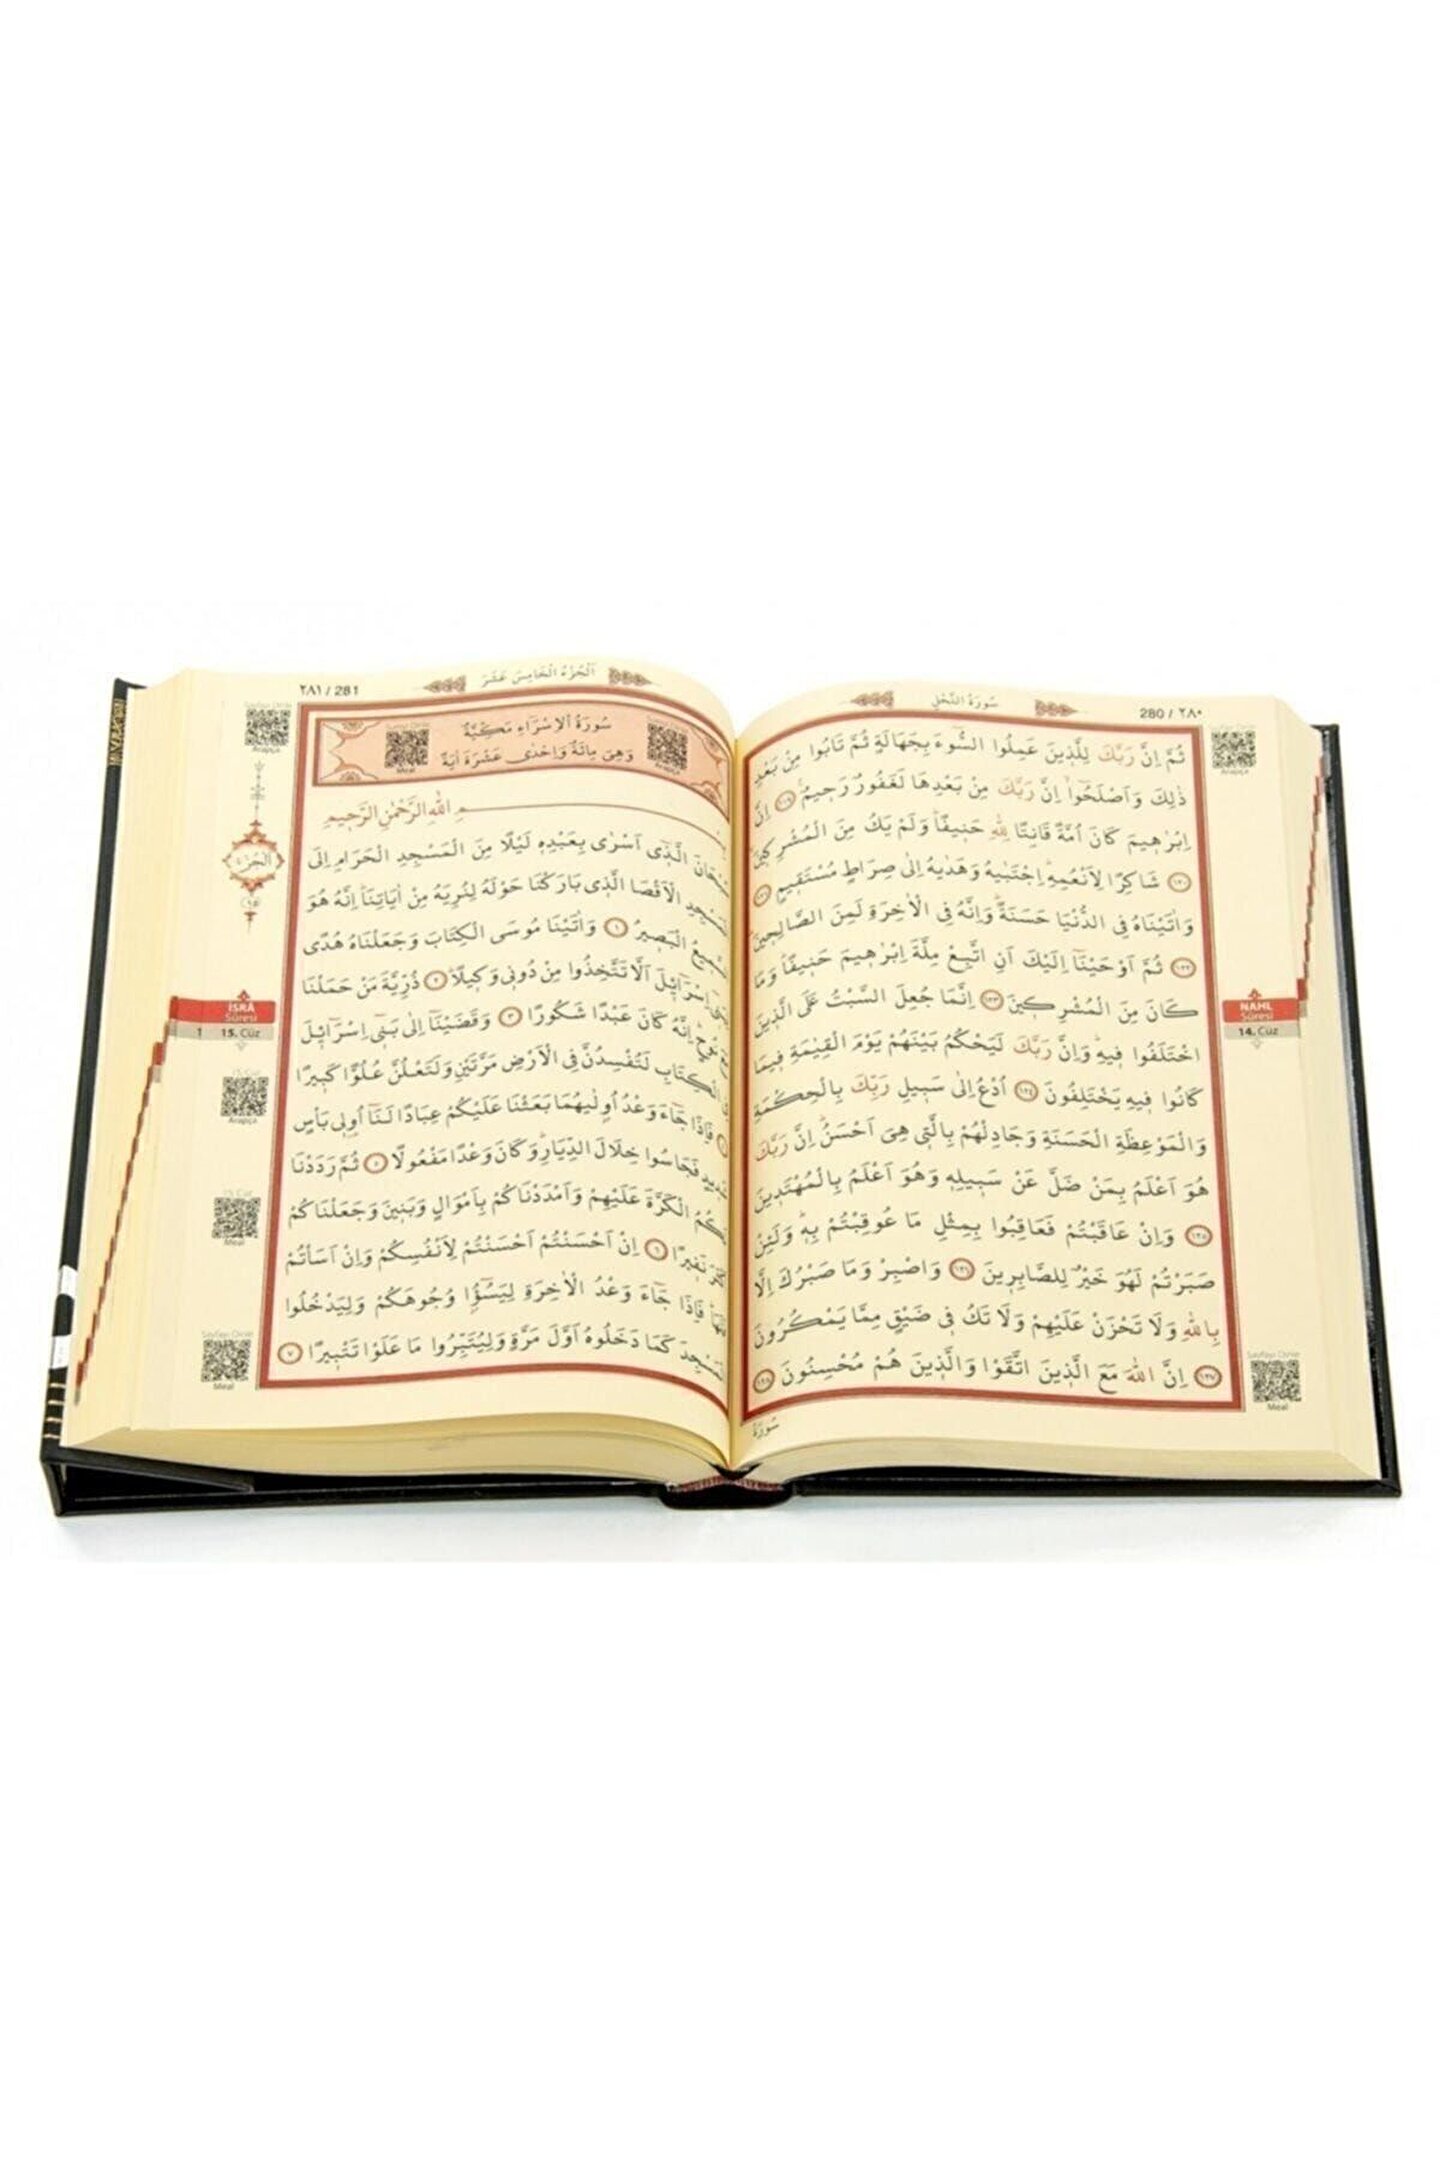 280 / ٢٨٠
سُورَةُ النَّحْلِ
ثُمَّ اِنَّ رَبَّكَ لِلَّذ۪ينَ عَمِلُوا السُّٓوءَ بِجَهَالَةٍ ثُمَّ تَابُوا مِنْ بَعْدِ
ذٰلِكَ وَاَصْلَحُٓوا اِنَّ رَبَّكَ مِنْ بَعْدِهَا لَغَفُورٌ رَح۪يمٌ۟ ﴿١١٩﴾ اِنَّ
اِبْرٰه۪يمَ كَانَ اُمَّةً قَانِتًا لِلّٰهِ حَن۪يفًاۜ وَلَمْ يَكُ مِنَ الْمُشْرِك۪ينَۙ
﴿١٢٠﴾ شَاكِرًا لِاَنْعُمِهِۜ اِجْتَبٰيهُ وَهَدٰيهُ اِلٰى صِرَاطٍ مُسْتَق۪يمٍ ﴿١٢١﴾
وَاٰتَيْنَاهُ فِي الدُّنْيَا حَسَنَةًۜ وَاِنَّهُ فِي الْاٰخِرَةِ لَمِنَ الصَّالِح۪ينَۜ
﴿١٢٢﴾ ثُمَّ اَوْحَيْنَٓا اِلَيْكَ اَنِ اتَّبِعْ مِلَّةَ اِبْرٰه۪يمَ حَن۪يفًاۜ وَمَا
كَانَ مِنَ الْمُشْرِك۪ينَ ﴿١٢٣﴾ اِنَّمَا جُعِلَ السَّبْتُ عَلَى الَّذ۪ينَ
اخْتَلَفُوا ف۪يهِۜ وَاِنَّ رَبَّكَ لَيَحْكُمُ بَيْنَهُمْ يَوْمَ الْقِيٰمَةِ ف۪يمَا
كَانُوا ف۪يهِ يَخْتَلِفُونَ ﴿١٢٤﴾ اُدْعُ اِلٰى سَب۪يلِ رَبِّكَ بِالْحِكْمَةِ
وَالْمَوْعِظَةِ الْحَسَنَةِ وَجَادِلْهُمْ بِالَّت۪ي هِيَ اَحْسَنُۜ اِنَّ رَبَّكَ
هُوَ اَعْلَمُ بِمَنْ ضَلَّ عَنْ سَب۪يلِه۪ وَهُوَ اَعْلَمُ بِالْمُهْتَد۪ينَ
﴿١٢٥﴾ وَاِنْ عَاقَبْتُمْ فَعَاقِبُوا بِمِثْلِ مَا عُوقِبْتُمْ بِه۪ۜ وَلَئِنْ
صَبَرْتُمْ لَهُوَ خَيْرٌ لِلصَّابِر۪ينَ ﴿١٢٦﴾ وَاصْبِرْ وَمَا صَبْرُكَ اِلَّا
بِاللّٰهِ وَلَا تَحْزَنْ عَلَيْهِمْ وَلَا تَكُ ف۪ي ضَيْقٍ مِمَّا يَمْكُرُونَ
﴿١٢٧﴾ اِنَّ اللّٰهَ مَعَ الَّذ۪ينَ اتَّقَوْا وَالَّذ۪ينَ هُمْ مُحْسِنُونَ ﴿١٢٨﴾
سُورَةُ
Arapça
NAHL
Sûresi
14. Cüz
Sayfayı Dinle
Meal
٢٨١ / 281
اَلْجُزْءُ الْخَامِسَ عَشَرَ
سُورَةُ الْاِسْرَاءِ مَكِّيَّةٌ
وَهِيَ مِائَةٌ وَاِحْدٰى عَشْرَةَ اٰيَةً
Meal
Arapça
اللّٰهِ الرَّحْمٰنِ الرَّح۪يمِ
سُبْحَانَ الَّذ۪ٓي اَسْرٰى بِعَبْدِه۪ لَيْلًا مِنَ الْمَسْجِدِ الْحَرَامِ اِلَى
الْمَسْجِدِ الْاَقْصَا الَّذ۪ي بَارَكْنَا حَوْلَهُ لِنُرِيَهُ مِنْ اٰيَاتِنَاۜ اِنَّهُ هُوَ
السَّم۪يعُ الْبَص۪يرُ ﴿١﴾ وَاٰتَيْنَا مُوسَى الْكِتَابَ وَجَعَلْنَاهُ هُدًى
اِسْرَٓا ئ۪لَ اَلَّا تَتَّخِذُوا مِنْ دُون۪ي وَك۪يلًاۜ ﴿٢﴾ ذُرِّيَّةَ مَنْ حَمَلْنَا
نُوحٍۜ اِنَّهُ كَانَ عَبْدًا شَكُورًا ﴿٣﴾ وَقَضَيْنَٓا اِلٰى بَن۪ٓي اِسْرَٓا ئ۪لَ
الْكِتَابِ لَتُفْسِدُنَّ فِي الْاَرْضِ مَرَّتَيْنِ وَلَتَعْلُنَّ عُلُوًّا كَب۪يرًا
فَاِذَا جَٓاءَ وَعْدُ اُو۫لٰيهُمَا بَعَثْنَا عَلَيْكُمْ عِبَادًا لَنَٓا اُو۬ل۪ي بَأْسٍ
شَد۪يدٍ فَجَاسُوا خِلَالَ الدِّيَارِۜ وَكَانَ وَعْدًا مَفْعُولًا ﴿٥﴾ ثُمَّ رَدَدْنَا
لَكُمُ الْكَرَّةَ عَلَيْهِمْ وَاَمْدَدْنَاكُمْ بِاَمْوَالٍ وَبَن۪ينَ وَجَعَلْنَاكُمْ
نَف۪يرًا ﴿٦﴾ اِنْ اَحْسَنْتُمْ اَحْسَنْتُمْ لِاَنْفُسِكُمْ وَاِنْ اَسَأْتُمْ
فَلَهَاۜ فَاِذَا جَٓاءَ وَعْدُ الْاٰخِرَةِ لِيَسُٓؤُ۫ا وُجُوهَكُمْ وَلِيَدْخُلُوا
الْمَسْجِدَ كَمَا دَخَلُوهُ اَوَّلَ مَرَّةٍ وَلِيُتَبِّرُوا مَا عَلَوْا تَتْب۪يرًا ﴿٧﴾
Sayfayı Dinle
Arapça
اَلْجُزْءُ
١٥
İSRÂ
Sûresi
1 15. Cüz
Arapça
Meal
Sayfayı Dinle
Meal